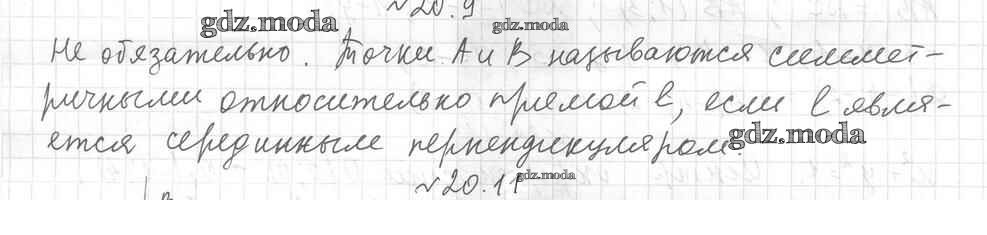 №20.9
gdz.moda gdz.moda
Не обязательно. Точки A и B называются симмет-
ричными относительно прямой l, если l явля-
ется серединным перпендикуляром.
gdz.moda
№20.11
gdz.moda
B